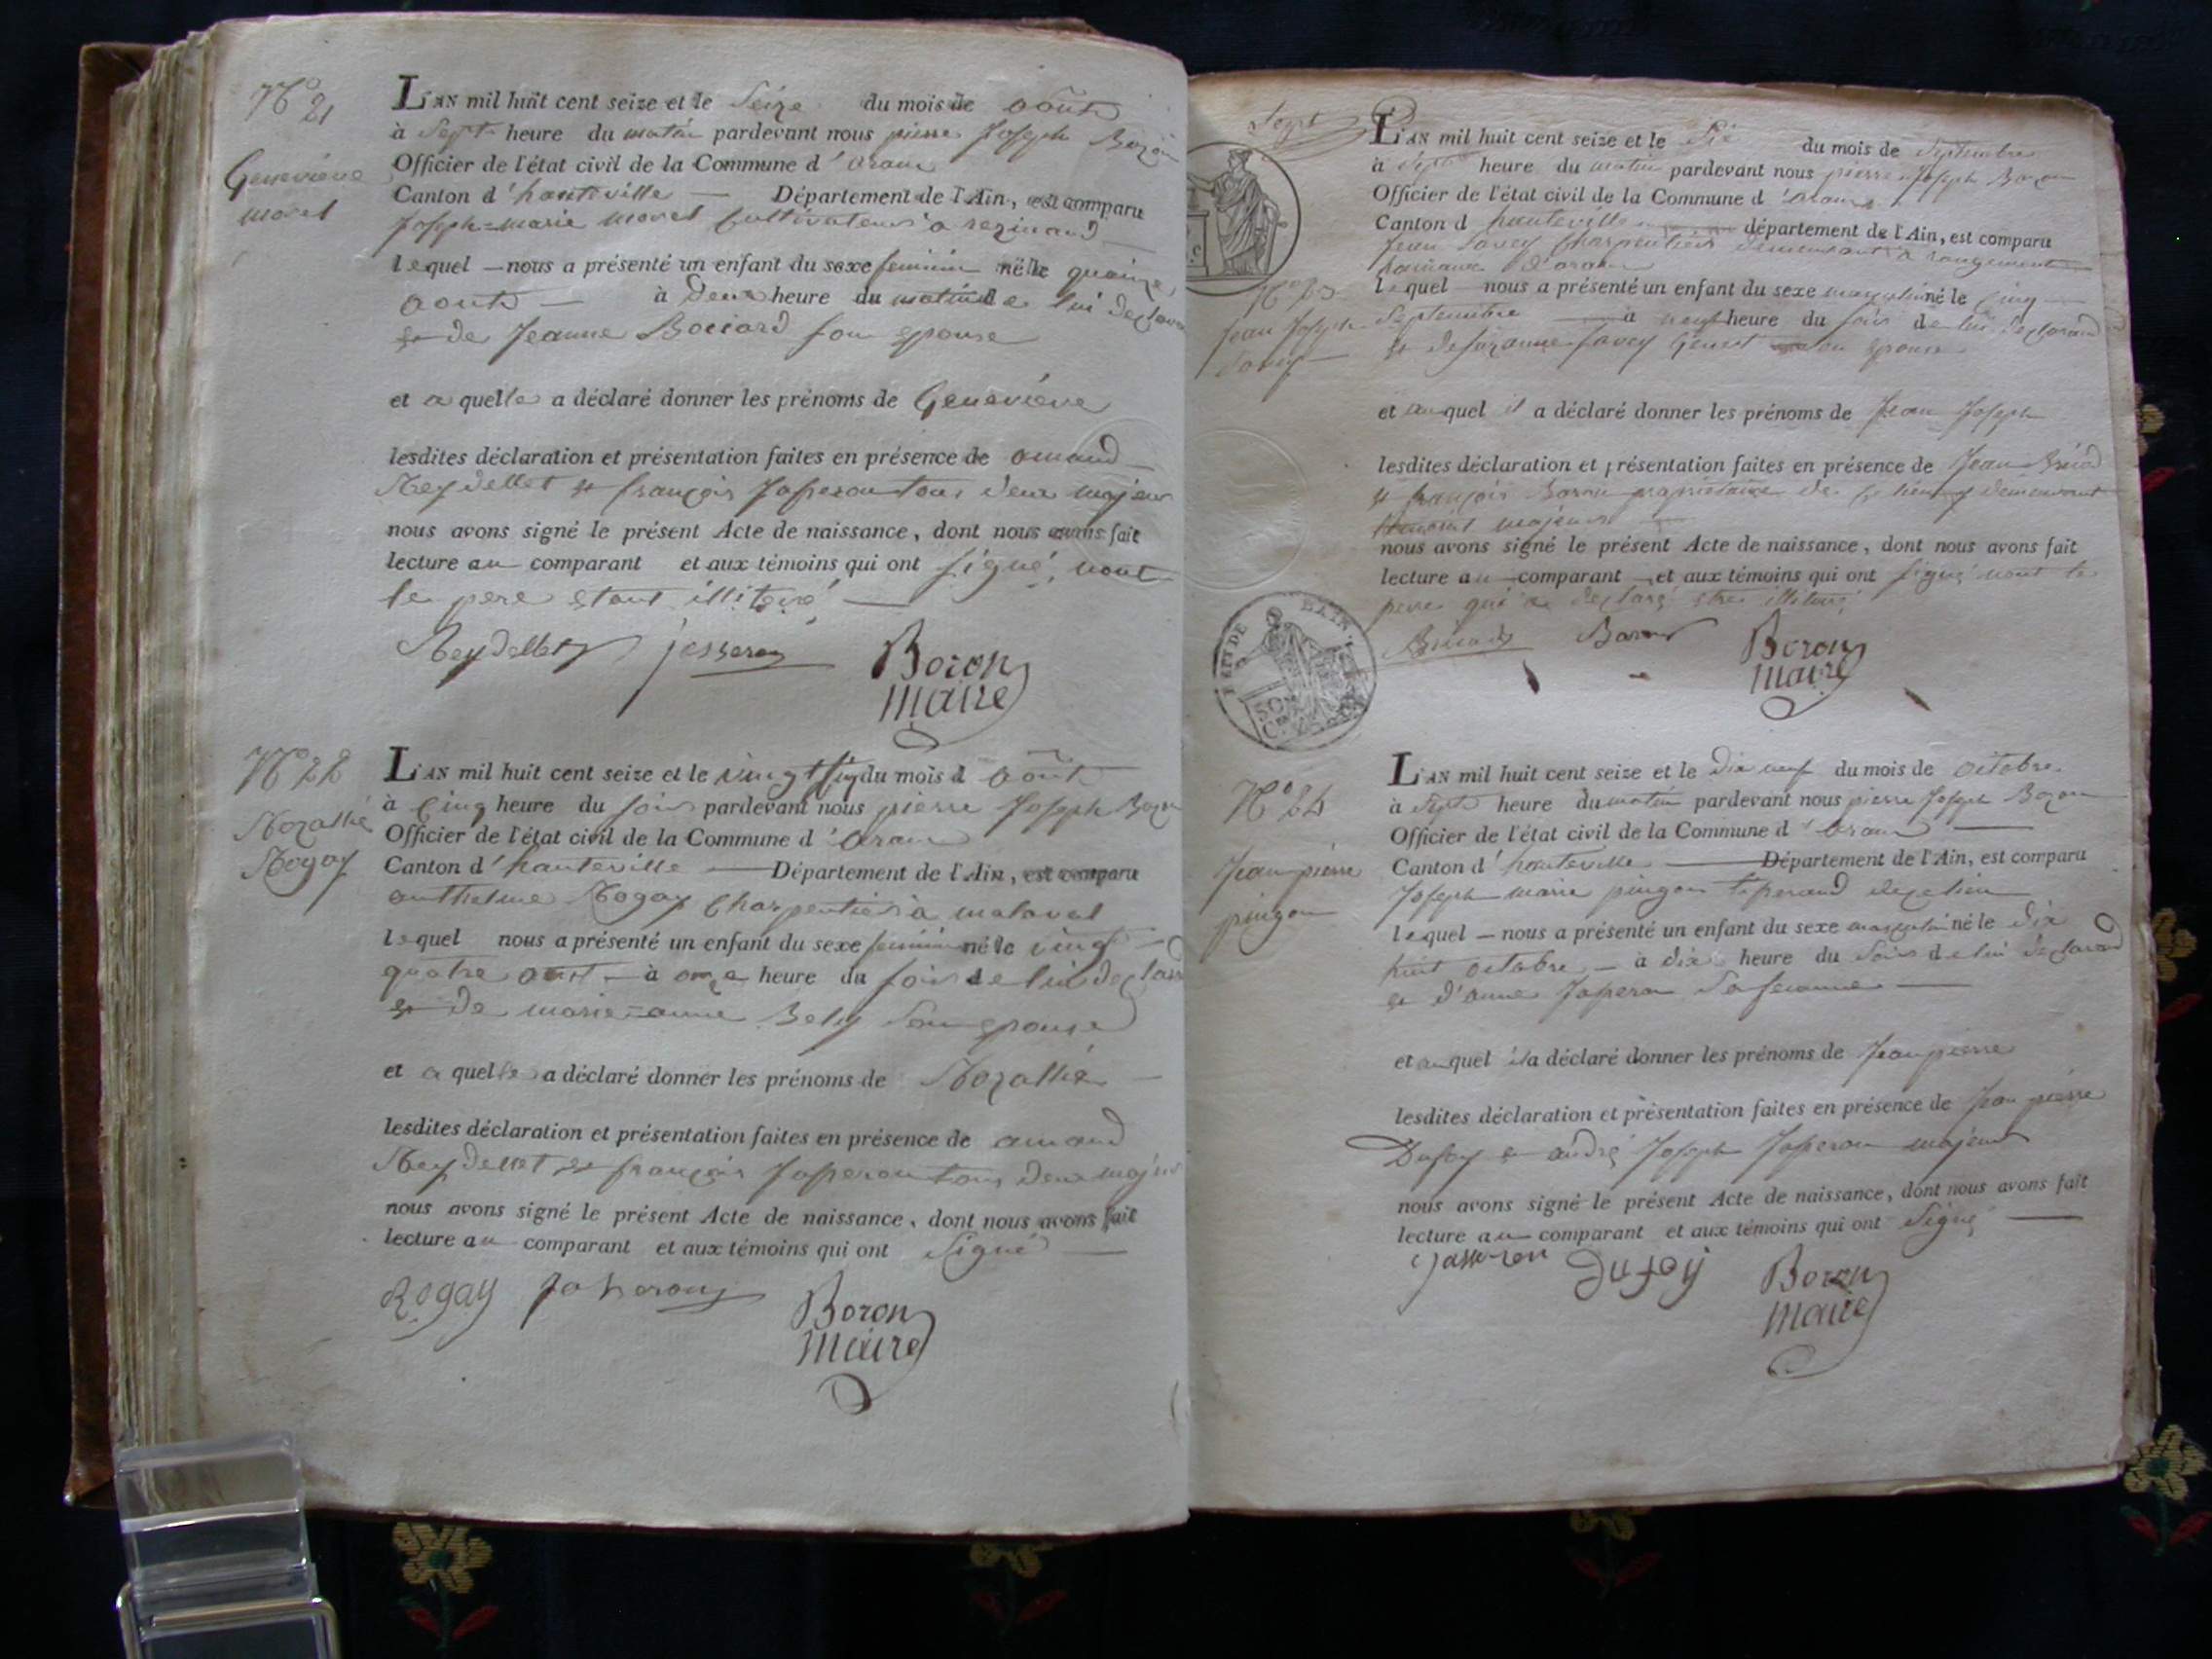 N° 21
Geneviève
moret
L'AN mil huit cent seize et le Seize du mois de août
à Sept heure du matin pardevant nous pierre Joseph Bozon
Officier de l'état civil de la Commune d'aranc
Canton d'hauteville — Département de l'Ain, est comparu
Joseph=marie moret Cultivateur à rezinand
lequel — nous a présenté un enfant du sexe feminin né le quinze
août — à deux heure du matin de lui declarant
et de Jeanne Bociard son epouse
et a quelle a déclaré donner les prénoms de Geneviève
lesdites déclaration et présentation faites en présence de amand
Reydellet et françois Josseron tous deux majeur
nous avons signé le présent Acte de naissance, dont nous avons fait
lecture au comparant et aux témoins qui ont signé, nont
le pere etant illiteré —
Reydellet josseron Bozon
maire
N° 22
Rozallie
Rogay
L'AN mil huit cent seize et le vingt six du mois d août
à Cinq heure du soir pardevant nous pierre Joseph Bozon
Officier de l'état civil de la Commune d'aranc
Canton d'hauteville — Département de l'Ain, est comparu
anthelme Rogay Charpentier à malaval
lequel nous a présenté un enfant du sexe feminin né le vingt
quatre août — à onze heure du soir de lui declarant
et de marie=anne Bely son epouse
et a quelle a déclaré donner les prénoms de Rozallie —
lesdites déclaration et présentation faites en présence de amand
Reydellet et françois Josseron tous deux majeur
nous avons signé le présent Acte de naissance, dont nous avons fait
lecture au comparant et aux témoins qui ont Signé —
Rogay Josseron Bozon
maire
Sept
N° 23
Jean Joseph
Savey
L'AN mil huit cent seize et le Six du mois de Septembre
à Sept heure du matin pardevant nous pierre Joseph Bozon
Officier de l'état civil de la Commune d'aranc
Canton d hauteville département de l'Ain, est comparu
Jean Savey Charpentier demeurant à rougemont
d'aranc
lequel nous a présenté un enfant du sexe masculin né le Cinq
Septembre — à neuf heure du soir de lui declarant
et de suzanne Savey Genest son epouse
et auquel il a déclaré donner les prénoms de Jean Joseph
lesdites déclaration et présentation faites en présence de Jean
et françois Baron propriétaire de demeurant
majeurs
nous avons signé le présent Acte de naissance, dont nous avons fait
lecture au comparant et aux témoins qui ont signé nont le
pere qui a declaré etre illiteré
Baron Bozon
maire
TIMBRE DE
50
CES
N° 24
Jean pierre
pingon
L'AN mil huit cent seize et le dix neuf du mois de octobre
à Sept heure du matin pardevant nous pierre Joseph Bozon
Officier de l'état civil de la Commune d'aranc —
Canton d'hauteville — Département de l'Ain, est comparu
Joseph marie pingon
lequel — nous a présenté un enfant du sexe masculin né le dix
huit octobre — à dix heure du Soir de lui declarant
et d'anne Josseron Sa femme —
et auquel il a déclaré donner les prénoms de Jean pierre
lesdites déclaration et présentation faites en présence de Jean pierre
Dufey et andré Joseph Josseron majeur
nous avons signé le présent Acte de naissance, dont nous avons fait
lecture au comparant et aux témoins qui ont Signé —
Josseron Dufey Bozon
maire